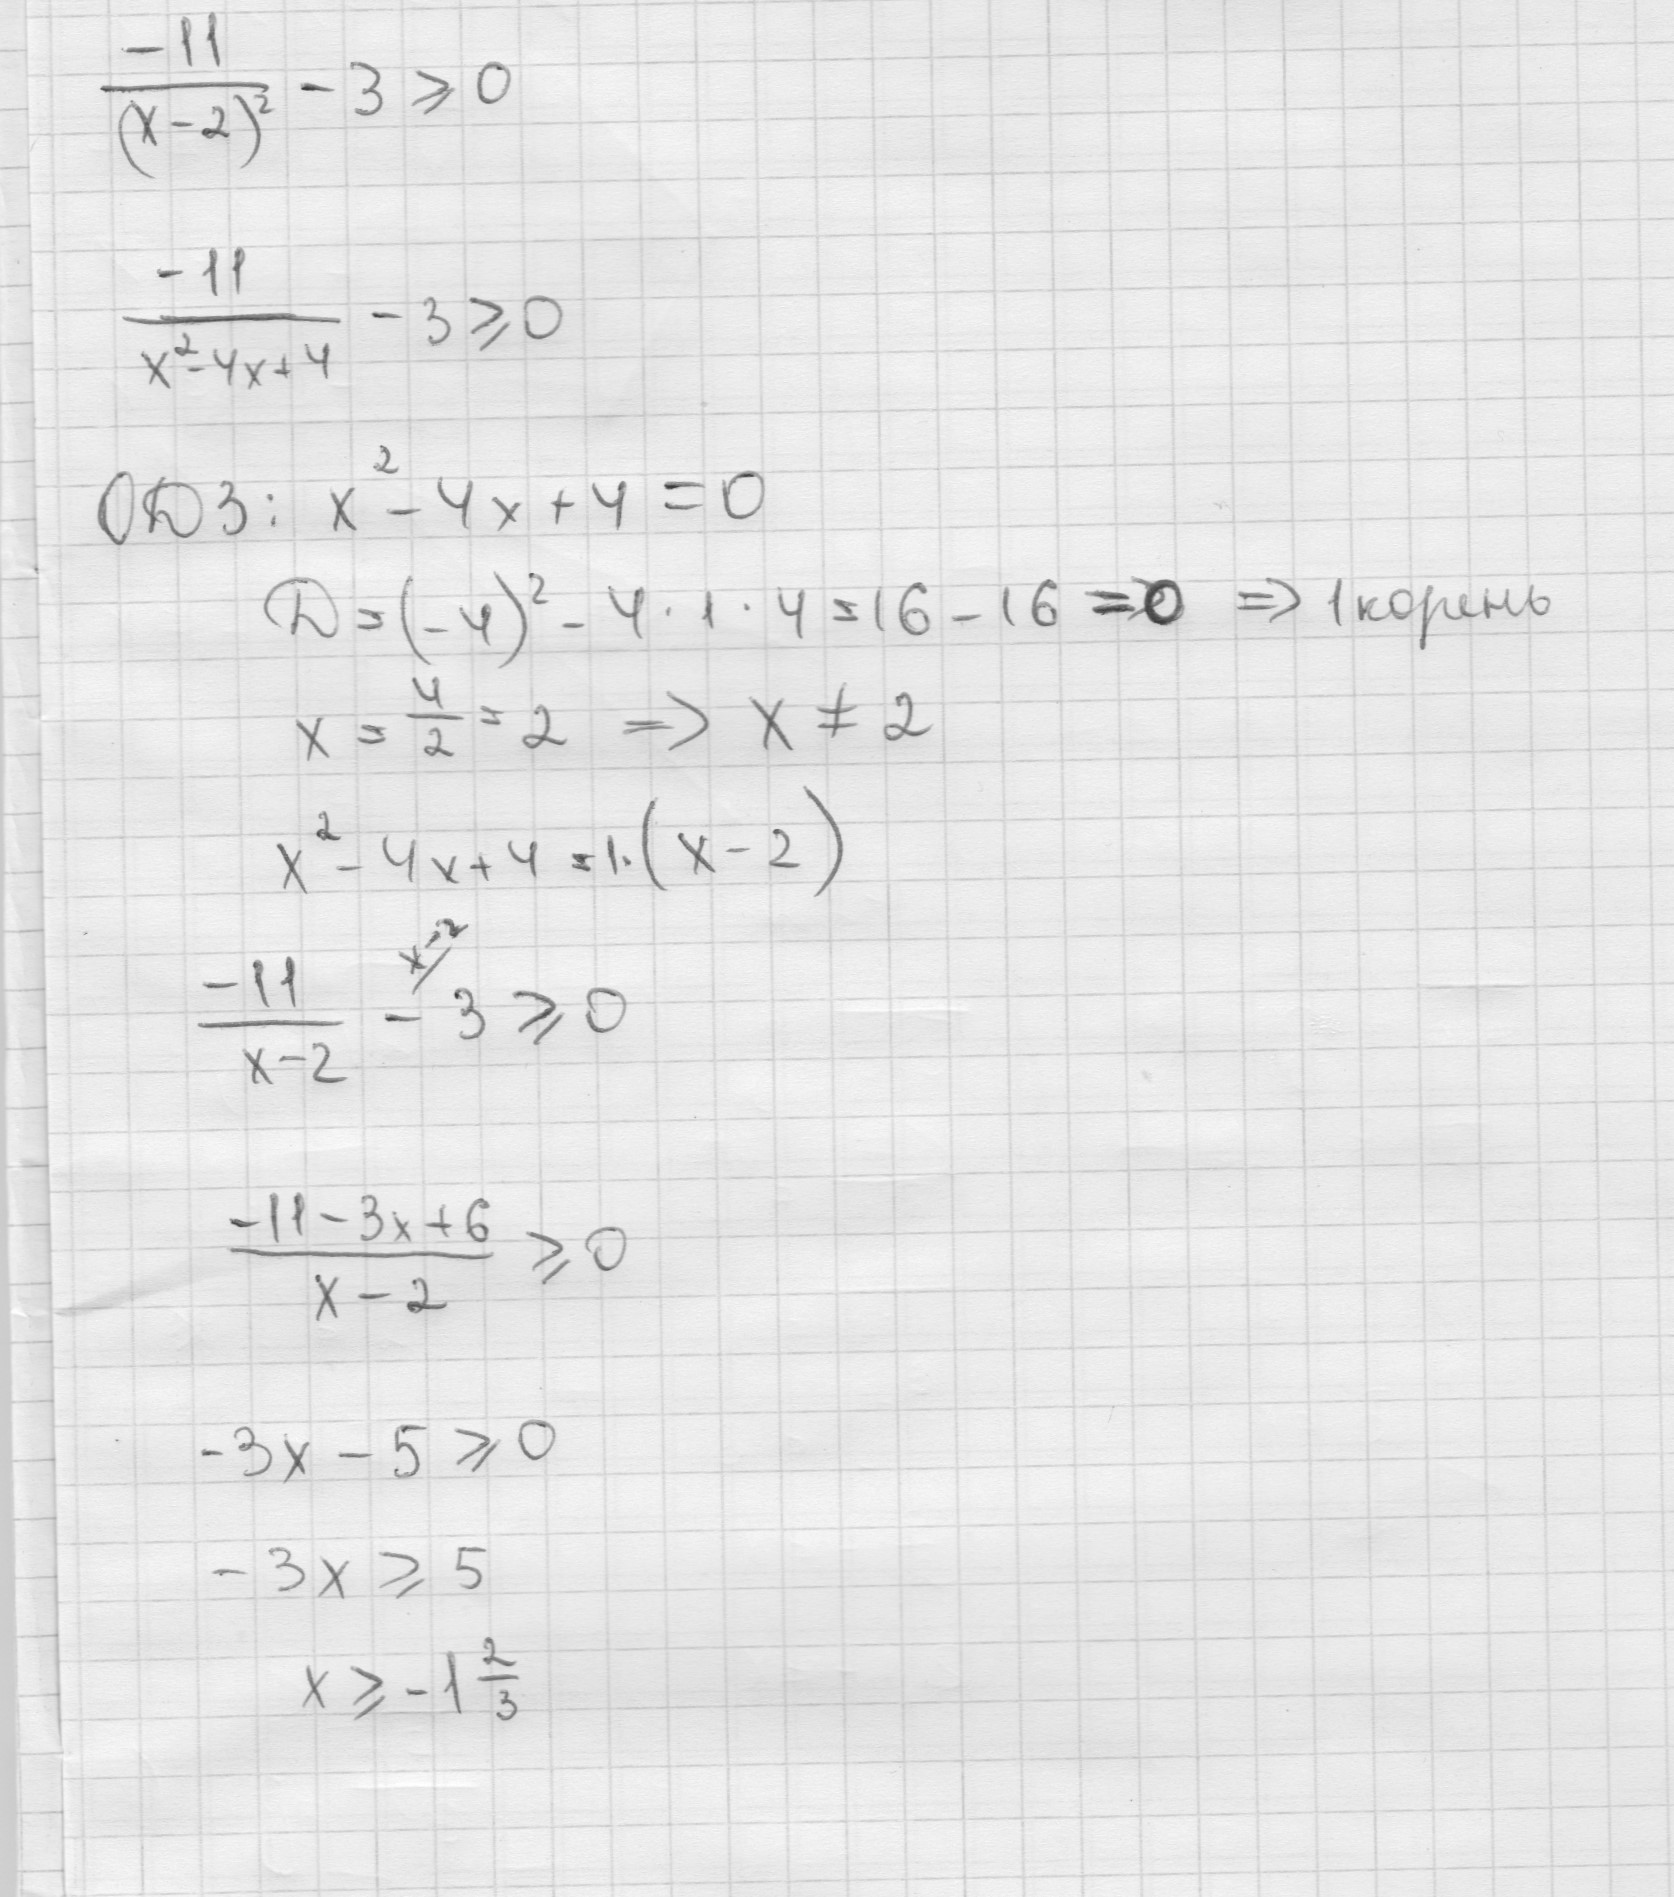 -11/(x-2)² - 3 ⩾ 0
-11/(x²-4x+4) - 3 ⩾ 0
ОДЗ: x² - 4x + 4 = 0
D = (-4)² - 4·1·4 = 16 - 16 = 0 => 1 корень
x = 4/2 = 2 => x ≠ 2
x² - 4x + 4 = 1·(x - 2)
-11/(x-2) - 3 ⩾ 0 x-2/
(-11-3x+6)/(x-2) ⩾ 0
-3x - 5 ⩾ 0
-3x ⩾ 5
x ⩾ -1 2/3